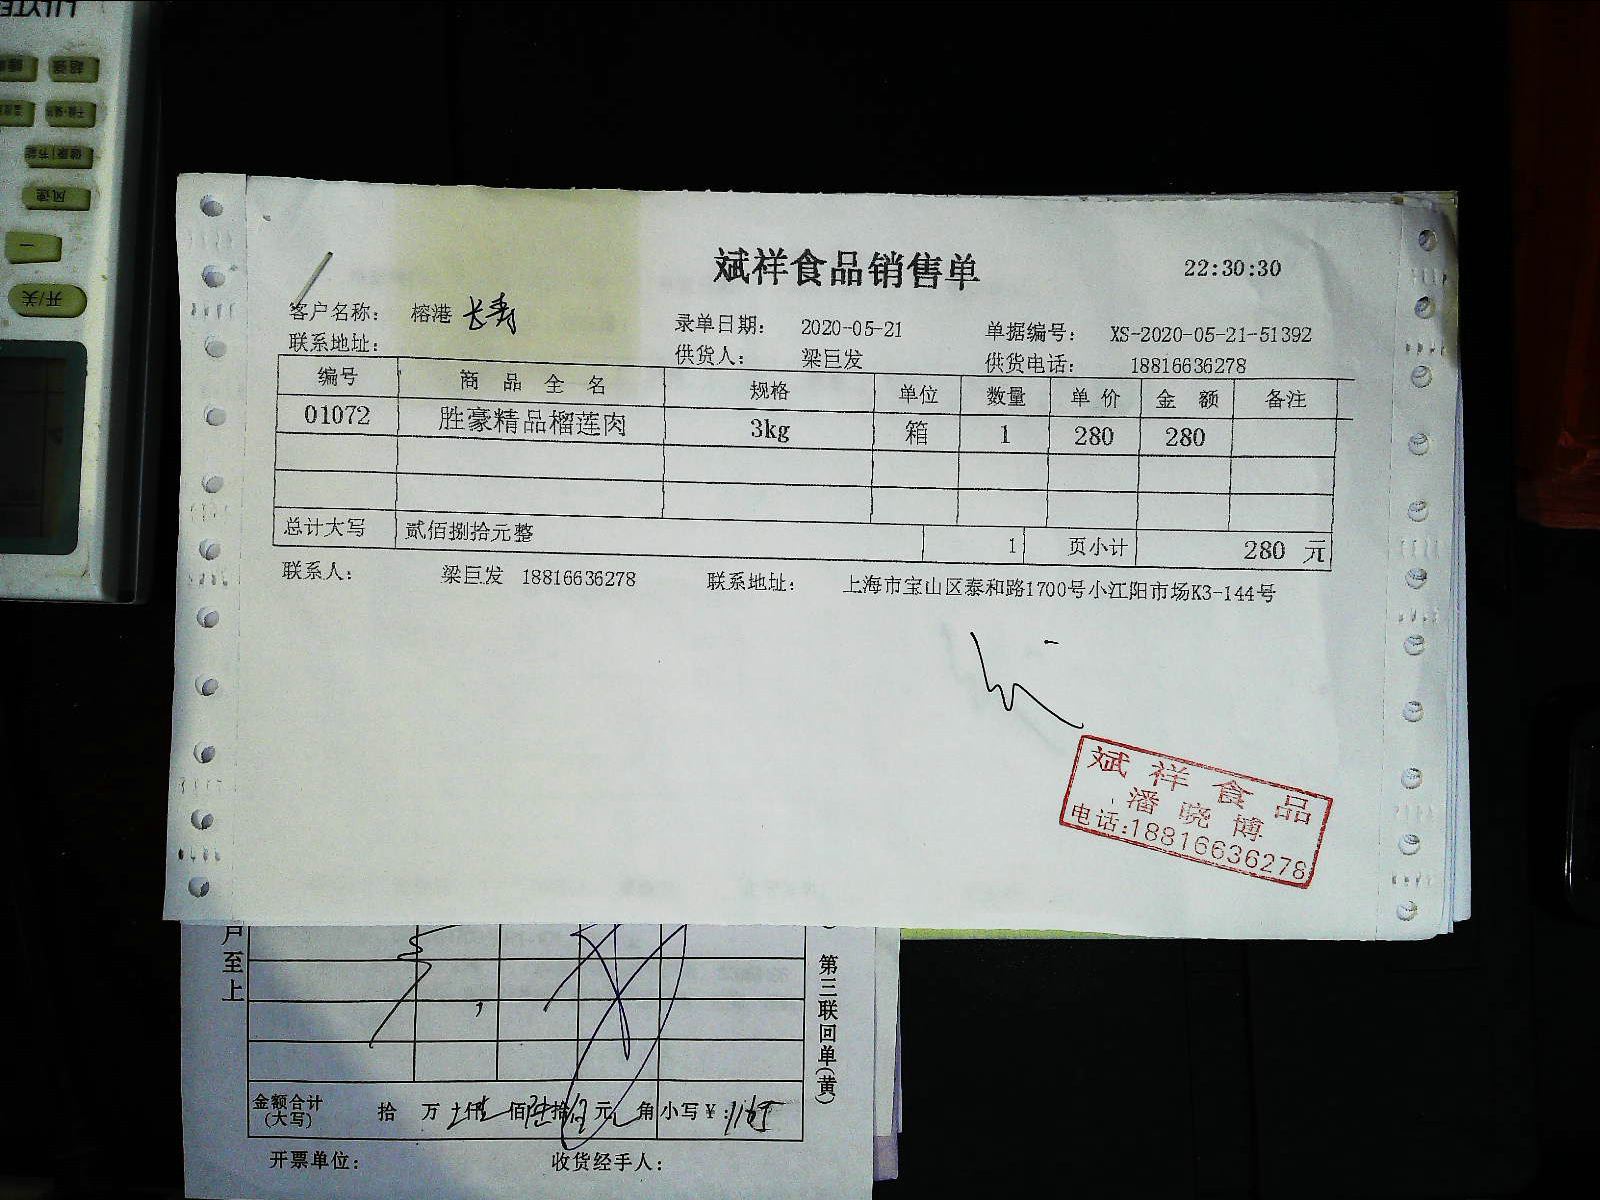 超强
健康 节能
风速
一
开/关
斌祥食品销售单
22:30:30
客户名称： 榕港 长寿
录单日期： 2020-05-21
单据编号： XS-2020-05-21-51392
联系地址：
供货人： 梁巨发
供货电话： 18816636278
编号 商品全名 规格 单位 数量 单价 金额 备注
01072 胜豪精品榴莲肉 3kg 箱 1 280 280
总计大写 贰佰捌拾元整 1 页小计 280 元
联系人： 梁巨发 18816636278 联系地址： 上海市宝山区泰和路1700号小江阳市场K3-144号
斌祥食品
潘晓博
电话:18816636278
户至上
第三联回单(黄)
金额合计(大写) 拾 万 仟 佰 拾 元 角 小写￥:
开票单位： 收货经手人：